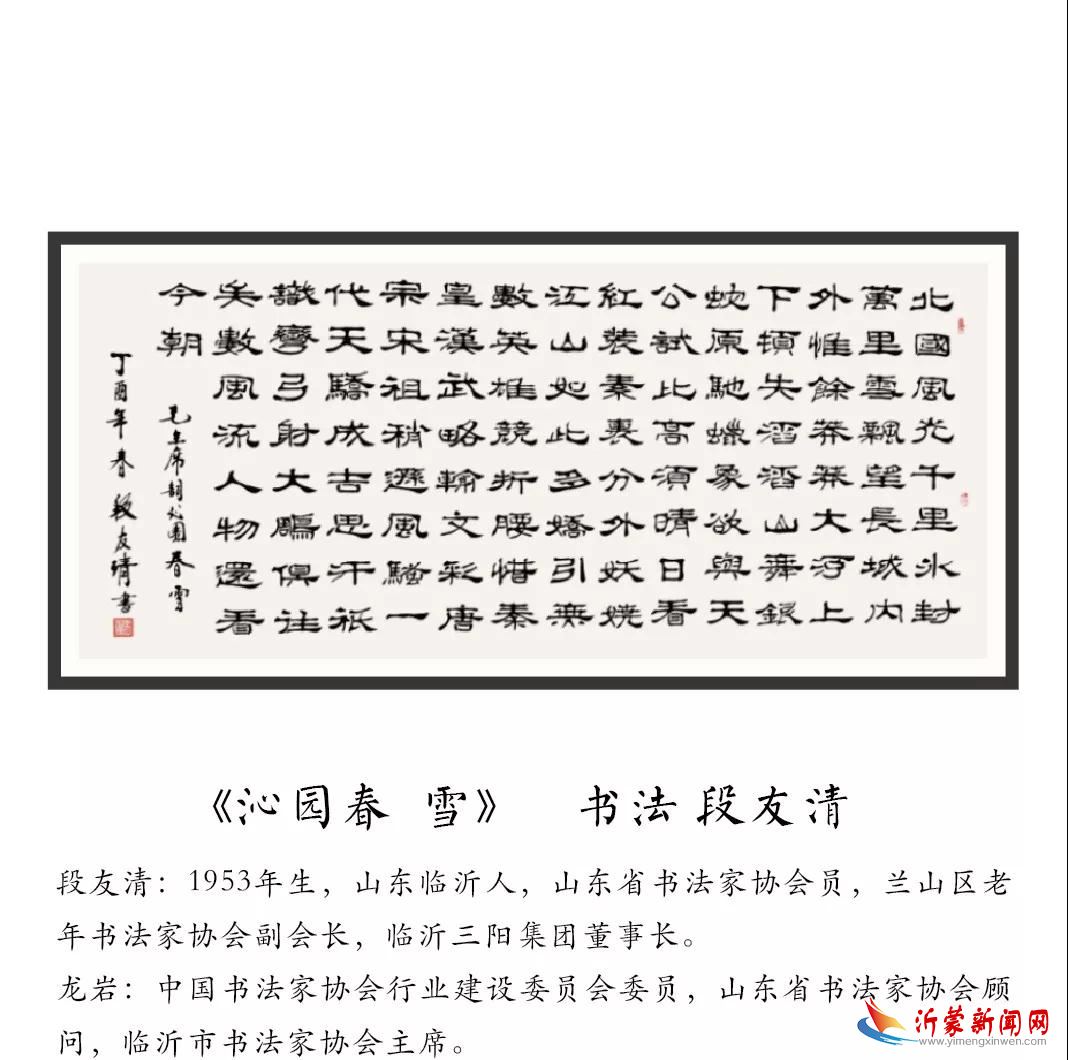 北國風光千里冰封
萬里雪飄望長城内
外惟餘莽莽大河上
下頓失滔滔山舞銀
蛇原馳蠟象欲與天
公試比高須晴日看
紅裝素裹分外妖嬈
江山如此多嬌引無
數英雄競折腰惜秦
皇漢武略輸文彩唐
宗宋祖稍遜風騷一
代天驕成吉思汗祇
識彎弓射大鵰俱往
矣數風流人物還看
今朝
毛主席詞沁園春雪
丁酉年春 段友清書
《沁园春 雪》 书法 段友清
段友清：1953年生，山东临沂人，山东省书法家协会员，兰山区老
年书法家协会副会长，临沂三阳集团董事长。
龙岩：中国书法家协会行业建设委员会委员，山东省书法家协会顾
问，临沂市书法家协会主席。
沂蒙新闻网
www.yimengxinwen.com